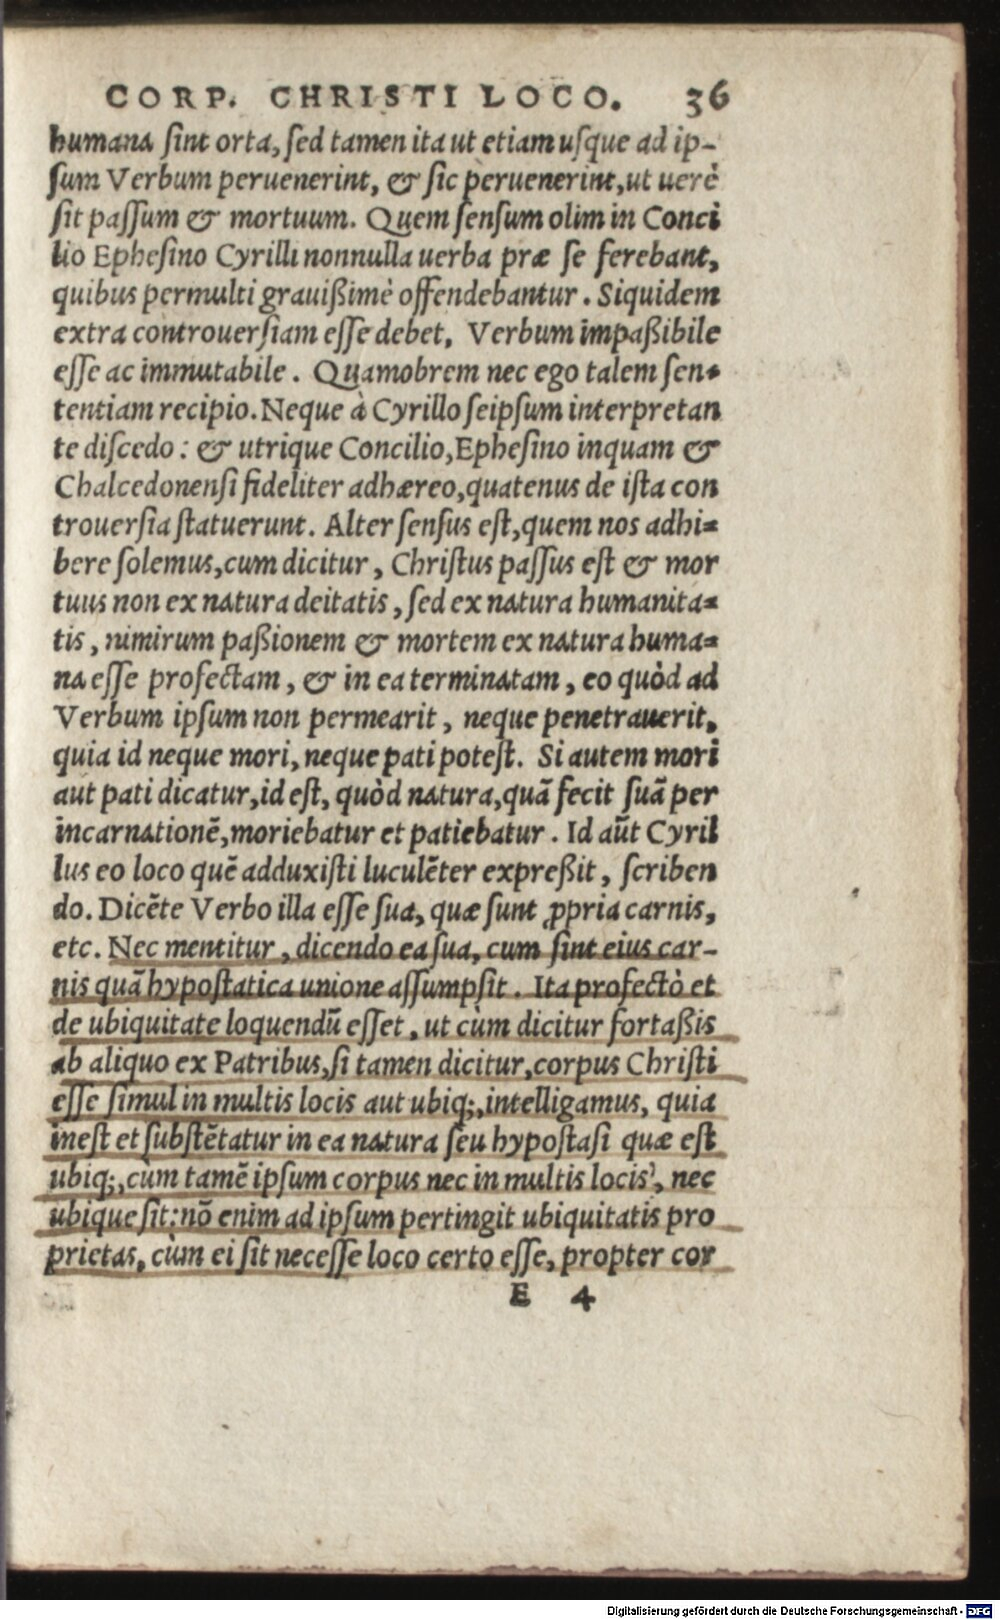 CORP. CHRISTI LOCO. 36
humana sint orta, sed tamen ita ut etiam usque ad ip-
sum Verbum peruenerint, & sic peruenerint, ut uerè
sit passum & mortuum. Quem sensum olim in Conci
lio Ephesino Cyrilli nonnulla uerba præ se ferebant,
quibus permulti grauißimè offendebantur. Siquidem
extra controuersiam esse debet, Verbum impaßibile
esse ac immutabile. Quamobrem nec ego talem sen-
tentiam recipio. Neque à Cyrillo seipsum interpretan
te discedo: & utrique Concilio, Ephesino inquam &
Chalcedonensi fideliter adhæreo, quatenus de ista con
trouersia statuerunt. Alter sensus est, quem nos adhi=
bere solemus, cum dicitur, Christus passus est & mor
tuus non ex natura deitatis, sed ex natura humanita=
tis, nimirum paßionem & mortem ex natura huma=
na esse profectam, & in ea terminatam, eo quòd ad
Verbum ipsum non permearit, neque penetrauerit,
quia id neque mori, neque pati potest. Si autem mori
aut pati dicatur, id est, quòd natura, quã fecit suã per
incarnationẽ, moriebatur et patiebatur. Id aũt Cyril
lus eo loco quẽ adduxisti luculẽter expreßit, scriben
do. Dicẽte Verbo illa esse sua, quæ sunt ꝓpria carnis,
etc. Nec mentitur, dicendo ea sua, cum sint eius car-
nis quã hypostatica unione assumpsit. Ita profectò et
de ubiquitate loquendũ esset, ut cùm dicitur fortaßis
ab aliquo ex Patribus, si tamen dicitur, corpus Christi
esse simul in multis locis aut ubiq;, intelligamus, quia
inest et substẽtatur in ea natura seu hypostasi quæ est
ubiq;, cùm tamẽ ipsum corpus nec in multis locis, nec
ubique sit: nõ enim ad ipsum pertingit ubiquitatis pro
prietas, cùm ei sit necesse loco certo esse, propter cor
E 4
Digitalisierung gefördert durch die Deutsche Forschungsgemeinschaft - DFG